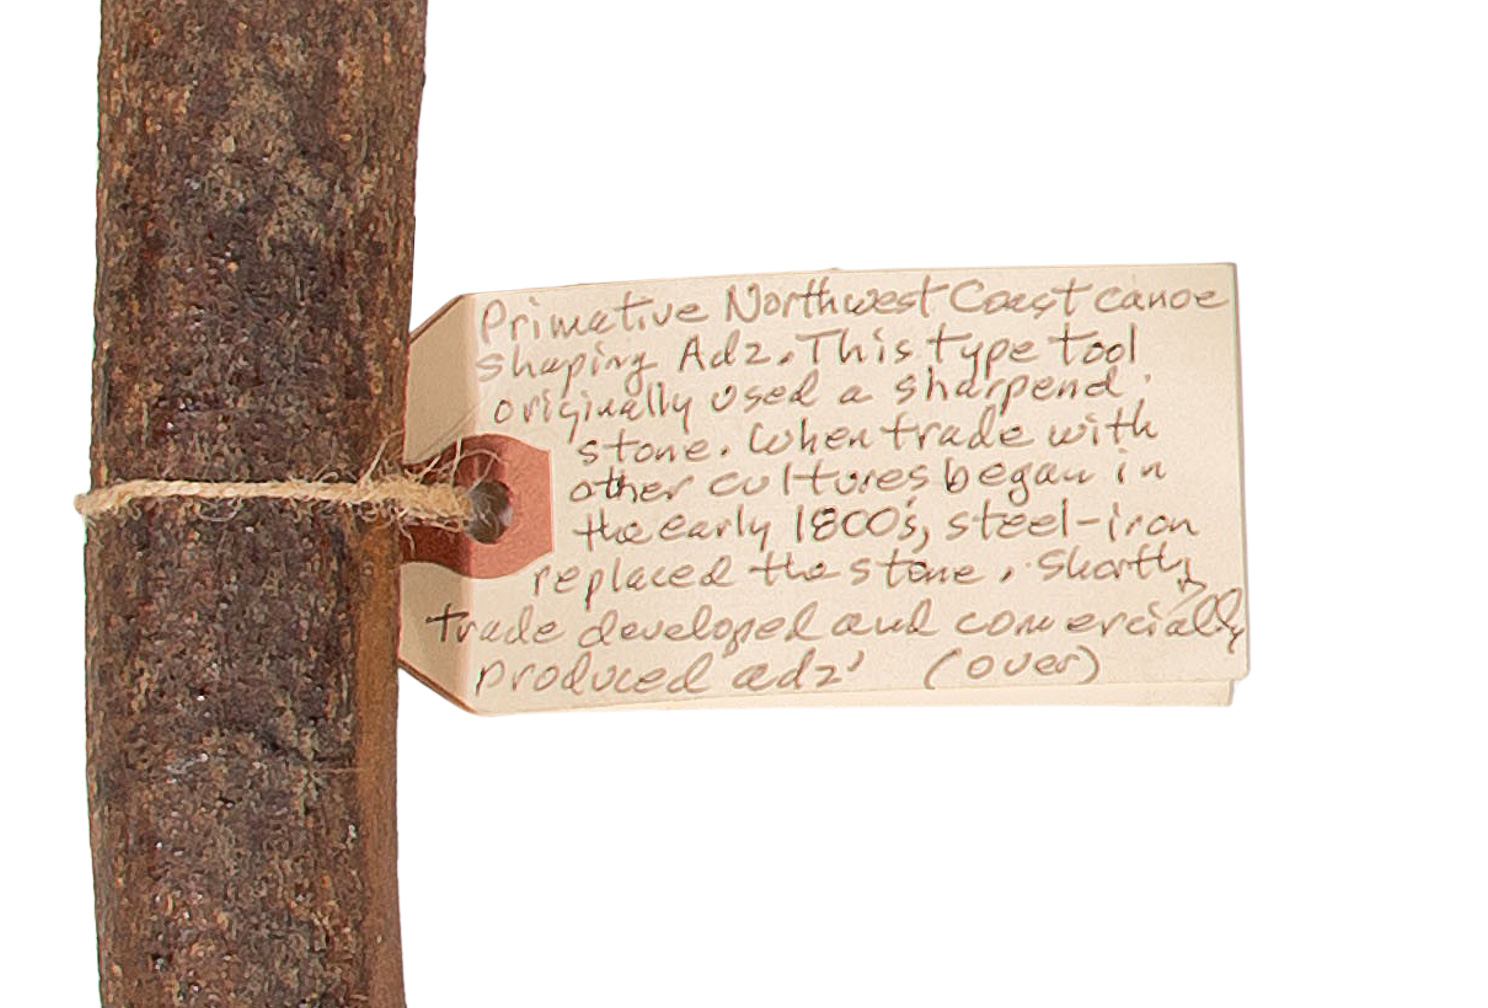 Primative Northwest Coast canoe
shaping Adz. This type tool
originally used a sharpend
stone. When trade with
other cultures began in
the early 1800's, steel-iron
replaced the stone. Shortly
trade developed and comercially
produced adz' (over)